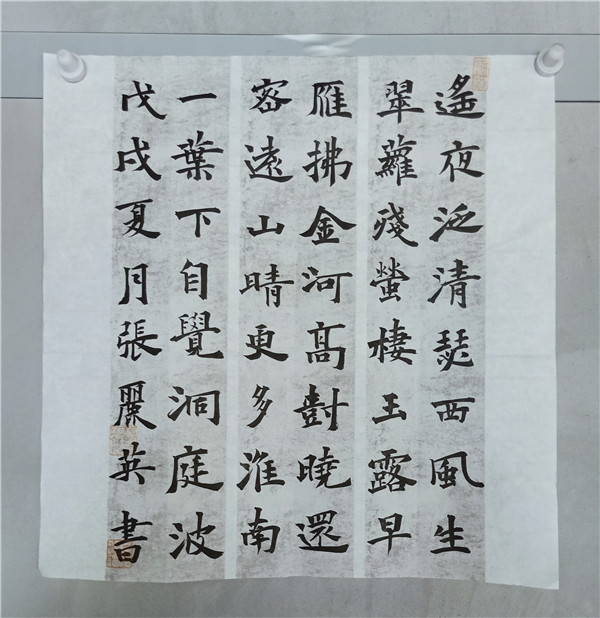 遙夜泛清瑟西風生
翠蘿殘螢棲玉露早
雁拂金河髙對曉還
密遠山晴更多淮南
一葉下自覺洞庭波
戊戌夏月張麗英書